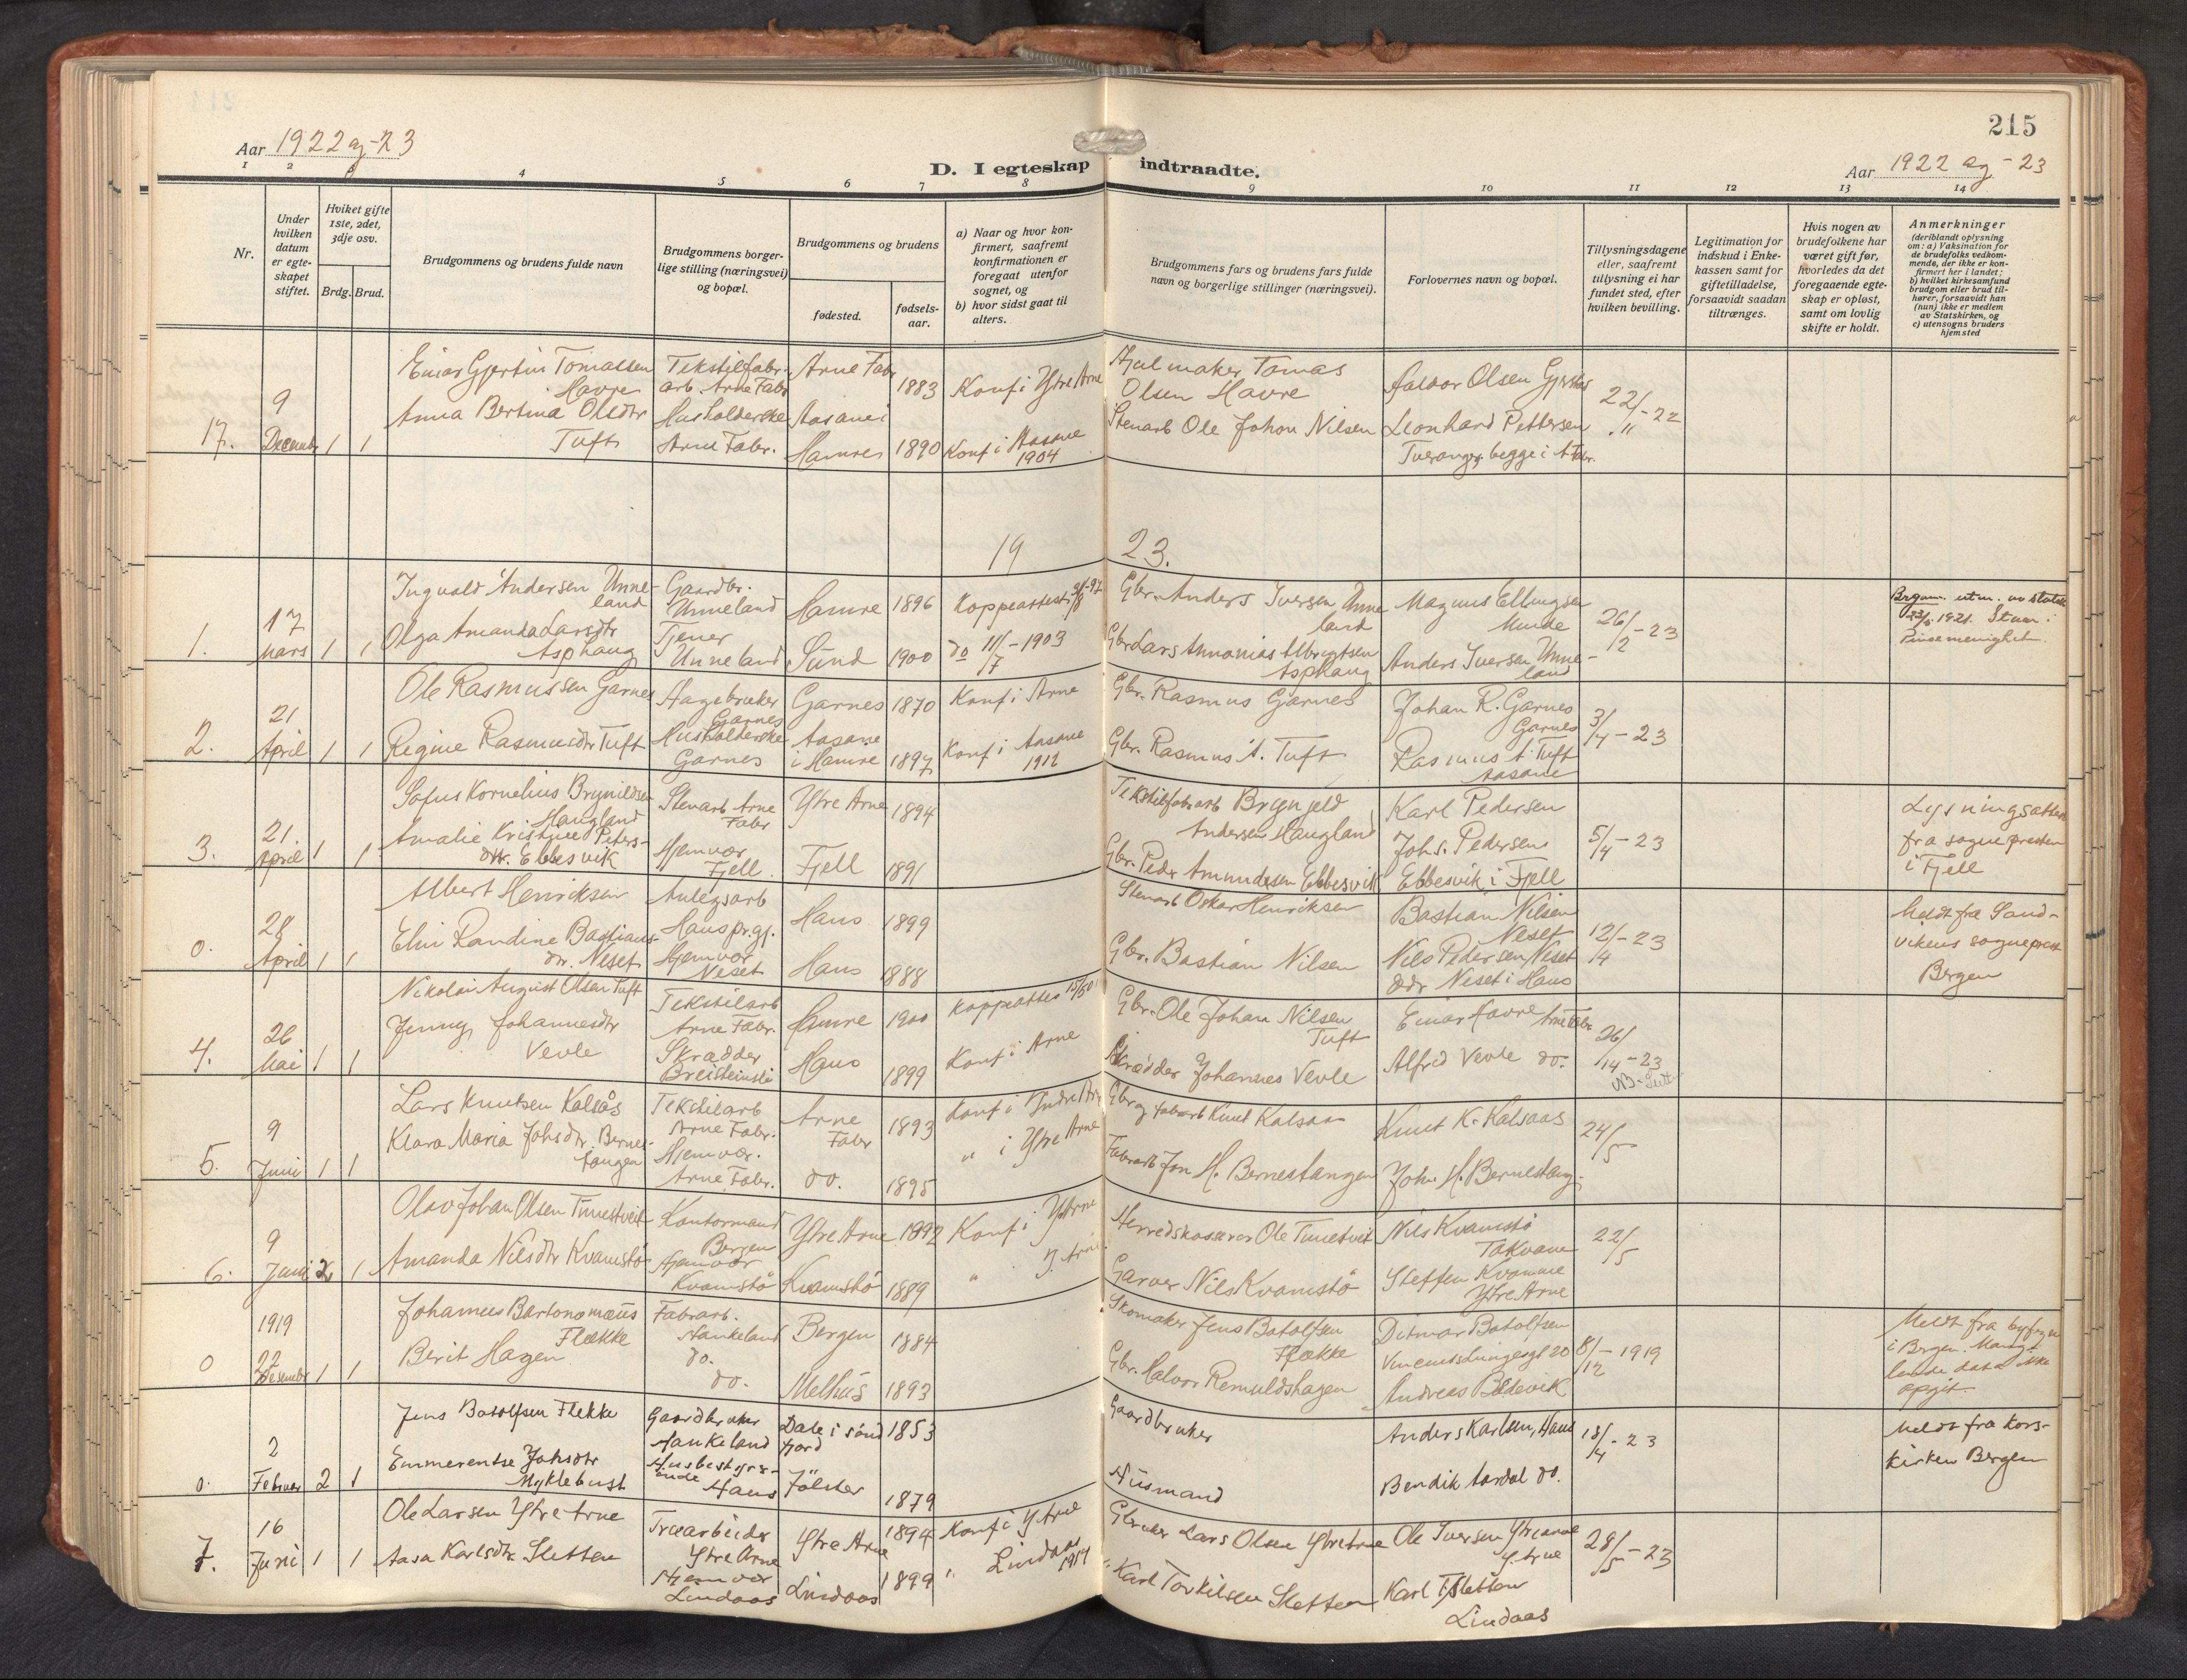 215
Aar 1922 og -23
D. I egteskap indtraadte.
Aar 1922 og -23
1 2 3 4 5 6 7 8 9 10 11 12 13 14
Nr.
Under hvilken datum er egte-skapet stiftet.
Hviket gifte 1ste, 2det, 3dje osv.
Brdg. Brud.
Brudgommens og brudens fulde navn
Brudgommens borger-lige stilling (næringsvei) og bopæl.
Brudgommens og brudens
fødested.
fødsels-aar.
a) Naar og hvor kon-firmert, saafremt konfirmationen er foregaat utenfor sognet, og
b) hvor sidst gaat til alters.
Brudgommens fars og brudens fars fulde navn og borgerlige stillinger (næringsvei).
Forlovernes navn og bopæl.
Tillysningsdagene eller, saafremt tillysning ei har fundet sted, efter hvilken bevilling.
Legitimation for indskud i Enke-kassen samt for giftetilladelse, forsaavidt saadan tiltrænges.
Hvis nogen av brudefolkene har været gift før, hvorledes da det foregaaende egte-skap er opløst, samt om lovlig skifte er holdt.
Anmerkninger
(deriblandt oplysning om: a) Vaksination for de brudefolks vedkom-mende, der ikke er kon-firmert her i landet; b) hvilket kirkesamfund brudgom eller brud til-hører, forsaavidt han (hun) ikke er medlem av Statskirken, og c) utensogns bruders hjemsted
17. 9 Decembr 1 1
Einar Gjertin Tomassen Havre
Tekstilfabr.arb. Arne Fabr
Arne Fabr 1883
Konf i Ytre Arne
Hjulmaker Tomas Olsen Havre
Halvor Olsen
22/11 -22
Anna Bertina Olsdtr Tuft
Husholderske Arne Fabr.
Aasane i Hamre 1890
Konf i Aasane 1904
Stenarb Ole Johan Nilsen
Leonhard Pettersen Tveranger begge i A Fabr.
19 23.
1. 17 Mars 1 1
Ingvald Andersen Unneland
Gaardbr. Unneland
Hamre 1896
Koppeattest
Gbr. Anders Iversen Unneland
Magnus Ellingsen
26/2 -23
Brgom. utm. av statsk. 1921. Staar i Pinsemenighet.
Olga Amanda Larsdtr Asphaug
Tjener Unneland
Sund 1900
do 11/7 -1903
Gbr Lars Annanias Albrigtsen Asphaug
Anders Iversen Unneland
2. 21 April 1 1
Ole Rasmussen Garnes
Garnes
Garnes 1870
Konf i Arne
Gbr. Rasmus Garnes
Johan R. Garnes Garnes
3/4 -23
Regine Rasmusdtr Tuft
Husholderske Garnes
Aasane i Hamre 1897
Konf i Aasane 1912
Gbr. Rasmus A. Tuft
Rasmus A. Tuft Aasane
3. 21. April 1 1
Sofus Kornelius Brynildsen Haugland
Stenarb Arne Fabr
Ytre Arne 1894
Tekstilfabrarb Brynjeld Andersen Haugland
Karl Pedersen
5/4 -23
Lysningsattest fra sognepresten i Fjell
Amalie Kristine Petersdtr. Ebbesvik
Hjemvær Fjell
Fjell 1891
Gbr. Peder Amundsen Ebbesvik
Johs. Pedersen Ebbesvik i Fjell
0. 28 April 1 1
Albert Henriksen
Anlegsarb Haus prgj.
Haus 1899
Stenarb Oskar Henriksen
Bastian Nilsen Neset
12/4 -23
Meldt fra Sandvikens sogneprest Bergen
Elin Randine Bastiansdtr. Neset
Hjemvær Neset
Haus 1888
Gbr. Bastian Nilsen
Nils Pedersen Neset do Neset i Haus
4. 26 Mai 1 1
Nikolai August Olsen Tuft
Tekstilarb Arne Fabr.
Hamre 1900
Koppeattest
Gbr. Ole Johan Nilsen Tuft
Einar Havre Arne Fabr.
26/4 -23
Jenny Johannesdtr Vevle
Skrædder Breisteinslii
Haus 1899
Konf i Arne
Skrædder Johannes Vevle
Alfred Vevle do.
5. 9 Juni 1 1
Lars Knutsen Kalsås
Tekstilarb Arne Fabr.
Arne Fabr 1893
Konf i Indre Arne
Gbr og fabarb Knut Kalsaas
Knut K. Kalsaas
24/5
Klara Maria Johsdtr. Bernestangen
Hjemvær. Arne Fabr.
do. 1895
" i Ytre Arne
Fabrarb Jon H. Bernestangen
John H. Bernestang.
6. 9 Juni 2 1
Olav Johan Olsen Tunestveit
Kontormand Bergen
Ytre Arne 1892
Konf i Y Arne
Herredskasserer Ole Tunestveit
Nils Kvamstø Takvam
22/5
Amanda Nilsdtr Kvamstø
Hjemvær Kvamstø
Kvamstø 1889
" Y. Arne
Garver Nils Kvamstø
Steffen Kvamme Ytre Arne
0 1919 22 Desembr 1 1
Johannes Bartonomæus Flække
Fabrarb. Haukeland
Bergen 1884
Skomaker Jens Batolfsen Flække
Ditmar Batolfsen
8/12 -1919
Meldt fra byfogn i Bergen. Manglende data ikke opgit.
Berit Hagen
do. do.
Melhus 1893
Gbr. Halvor Remuldshagen
Andreas
0. 2 Februar 2 1
Jens Batolfsen Flekke
Gaardbruker Haukeland
Dale i søndfjord 1853
Gaardbruker
Anders Karlsen, Haus
18/4 -23
Meldt fra Korskirken Bergen
Emmerentse Johsdtr Myklebust
Husbestyrende Haus
Jölster 1879
Husmand
Bendik Aardal do.
7. 16 Juni 1 1
Ole Larsen Ytre Arne
Træarbeider Ytre Arne
Ytre Arne 1894
Konf i Y Arne
Gbruker Lars Olsen Ytre Arne
Ole Iversen Ytre Arne Y. Arne
28/5 -23
Aasa Karlsdtr. Sletten
Hjemvær Lindaas
Lindaas 1899
" Lindaas 1914
" Karl Torkilsen Sletten
Karl T. Sletten Lindaas